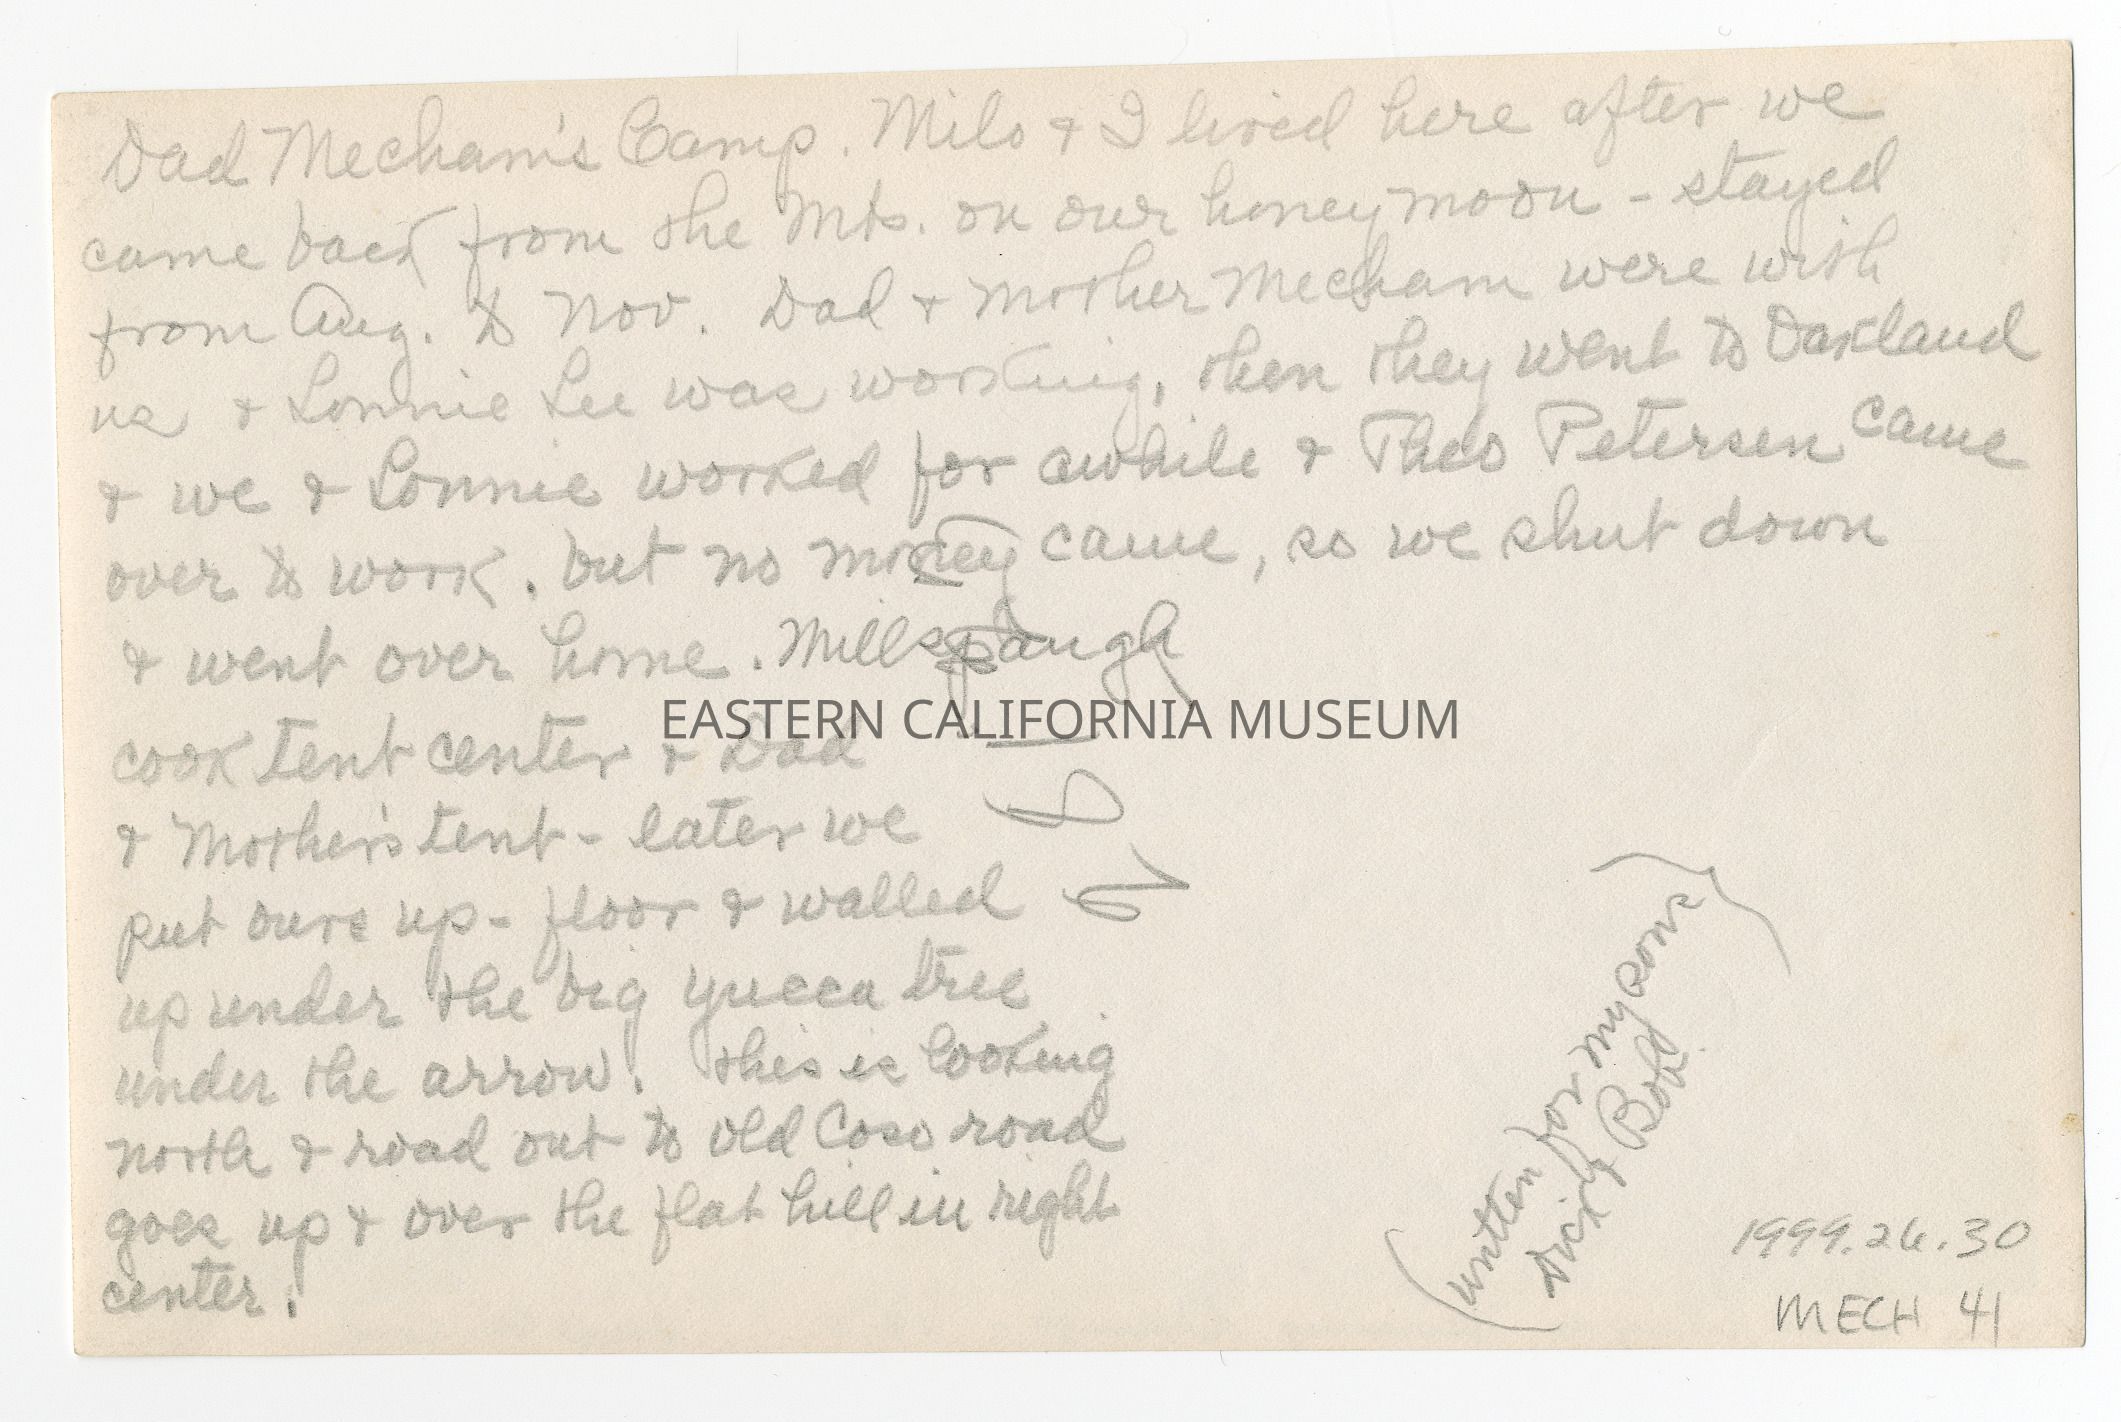 Dad Mecham's Camp. Milo & I lived here after we
came back from the Mts. on our honeymoon - stayed
from Aug. to Nov. Dad & Mother Mecham were with
us & Lonnie Lee was working, then they went to Oakland
& we & Lonnie worked for awhile & Theo Petersen came
over to work. but no money came, so we shut down
& went over home. Millspaugh
EASTERN CALIFORNIA MUSEUM
cook tent center & Dad
& Mother's tent - later we
put ours up - floor & walled
up under the big yucca tree
under the arrow. this is looking
north & road out to old Coso road
goes up & over the flat hill in right
center.
(written for my sons)
Dick & Bob
1999.26.30
MECH 41